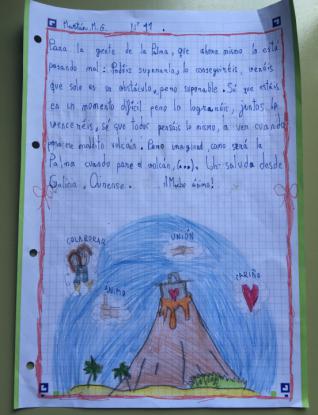 Martín M. G. Nº 11.
Para la gente de la Palma, que ahora mismo lo está
pasando mal: Podéis superarlo, lo conseguiréis, veréis
que solo es un obstáculo, pero superable. Sé que estáis
en un momento difícil pero lo lograréis, juntos lo
venceréis, sé que todos pensáis lo mismo, a ver cuando
para ese maldito volcán. Pero imaginad, como será la
Palma cuando pare el volcán, (...). Un saludo desde
Galicia, Ourense. ¡¡Mucho ánimo!
COLABORAR
UNIÓN
ÁNIMO
CARIÑO